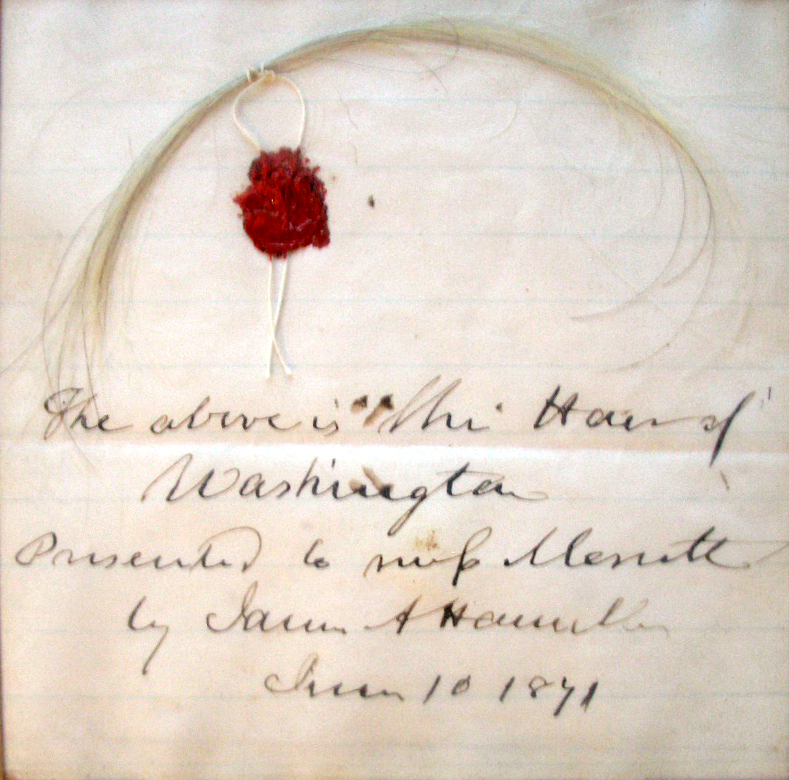 The above is the Hair of
Washington
Presented to miss Merritt
by James A Hamilton
June 10 1871